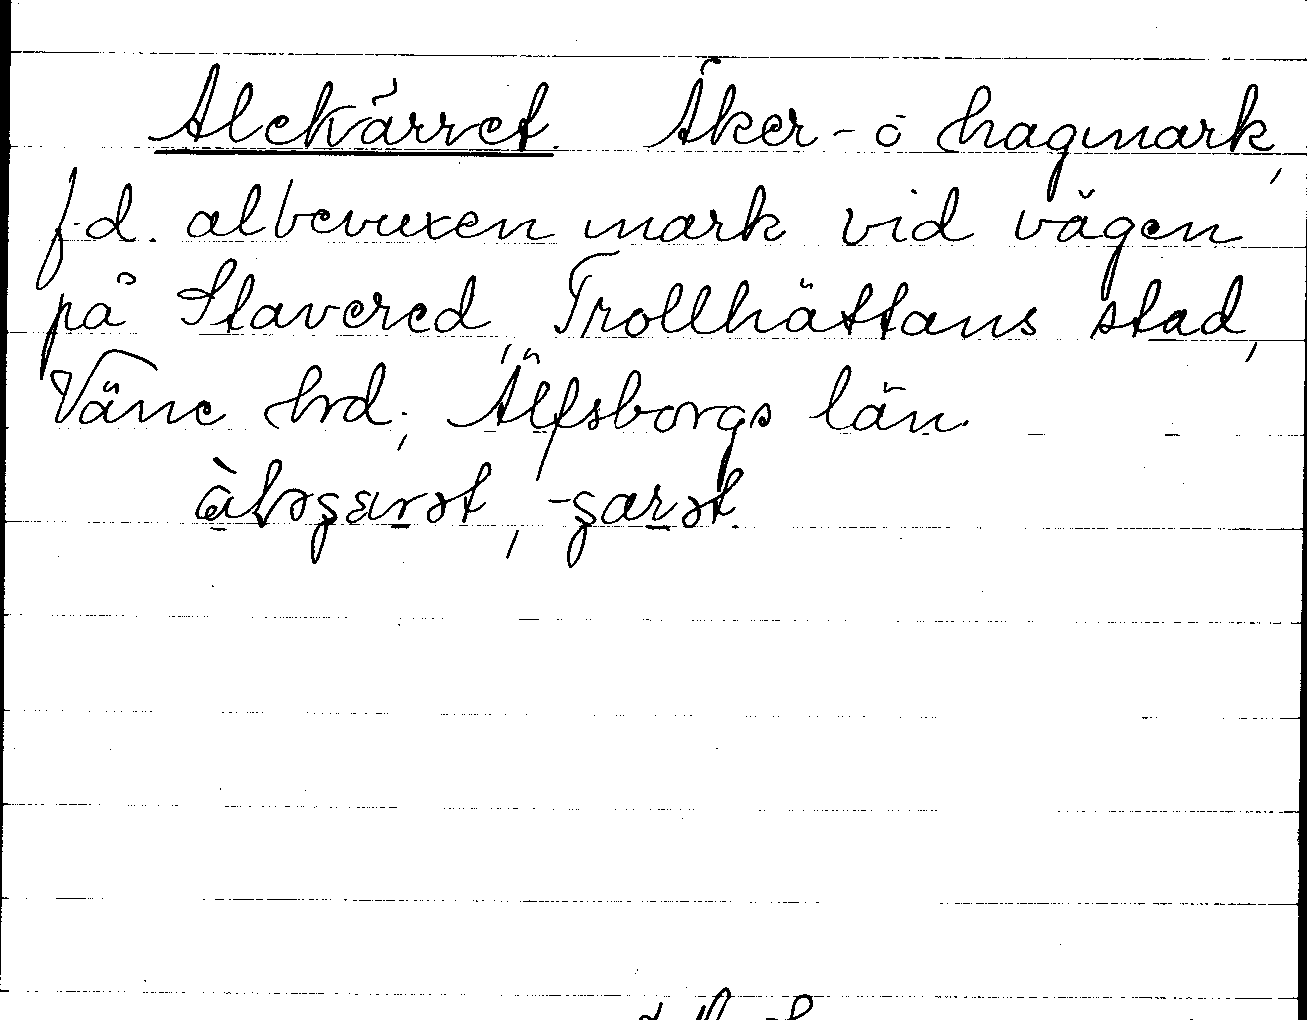 Alekärret. Åker- o hagmark,
f.d. albevuxen mark vid vägen
på Stavered, Trollhättans stad,
Väne hrd; Älfsborgs län.